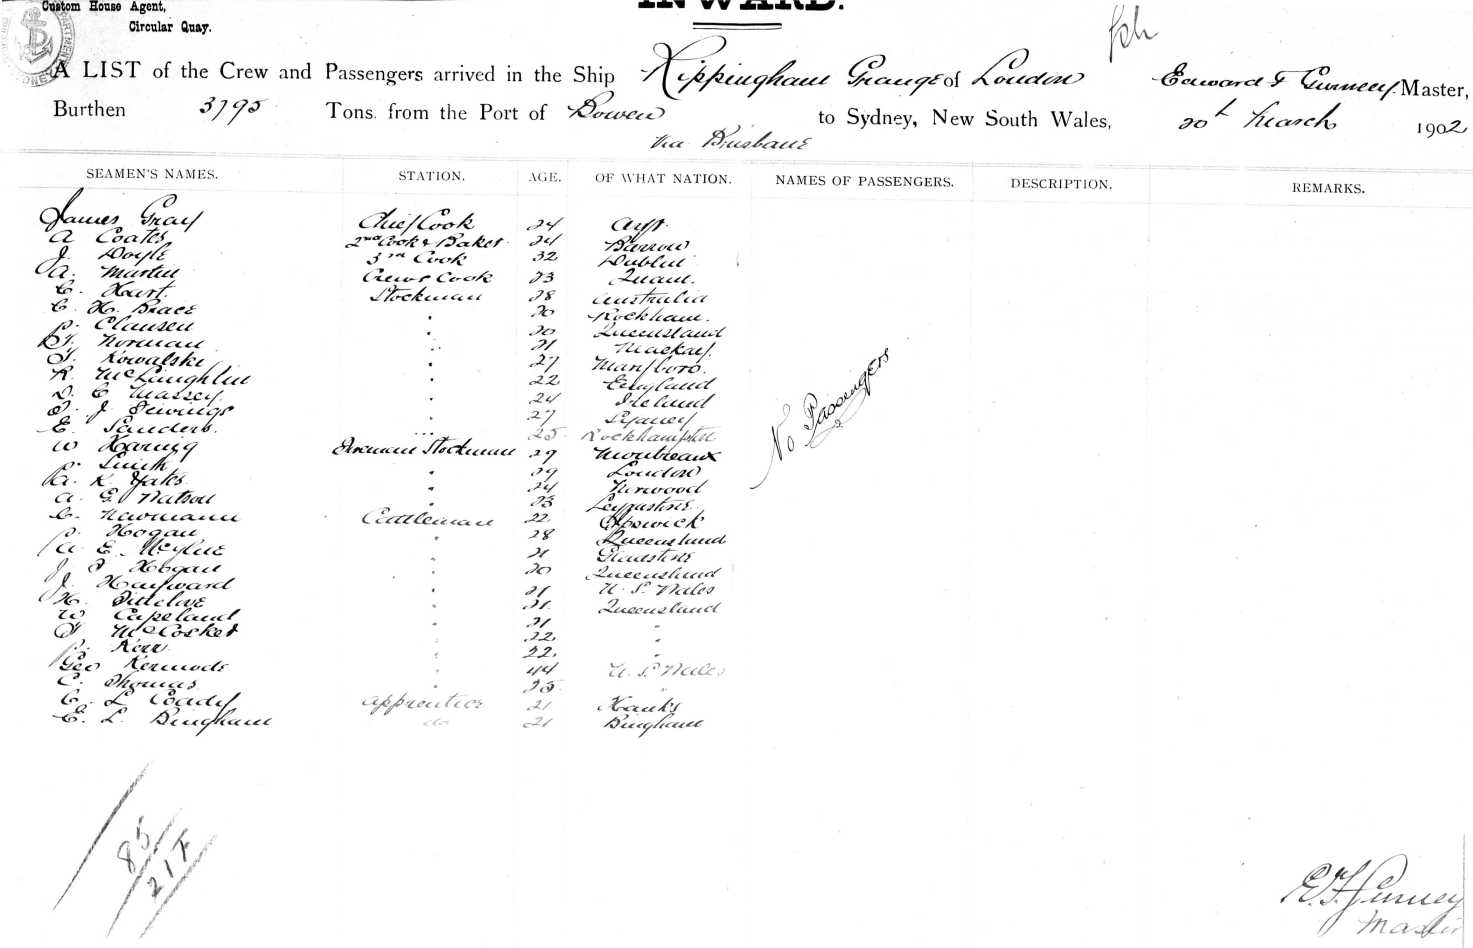 Custom House Agent,
Circular Quay.
INWARD.
A LIST of the Crew and Passengers arrived in the Ship Rippingham Grange of London Edward F Gurney Master,
Burthen 5795 Tons from the Port of Bowen to Sydney, New South Wales, 20th March 1902
via Brisbane
SEAMEN'S NAMES. STATION. AGE. OF WHAT NATION. NAMES OF PASSENGERS. DESCRIPTION. REMARKS.
James Gray Chief Cook 24 Ayr.
A Coates 2nd Cook & Baker 24 Barrow
J. Doyle 3rd Cook 32 Dublin
A. Martin Crews Cook 23
C. Hart. Stockman 28 Australia
C. H. Brace " 20 Rockham.
P. Clausen " 20 Queensland
Norman " 21 Mackay.
Kowalski " 27 Maryboro.
R. McLaughlin " 22 England
D. C Massey. " 24 Ireland
J. Jewings " 27 Sydney
E. Sanders. " 25 Rockhampton
W Haring Foreman Stockman 29
P. Smith " 29 London
A. K Yates " 24 Norwood
A. G. Watson " 23
C. Newmann Cattleman 22 Ipswick
P. Hogan " 28 Queensland
A E. " 21 Gladstone
J P Hogan " 20 Queensland
J. Hayward " 21 N. S. Wales
H. " 21 Queensland
W Capeland " 21 "
McCosker " 22 "
P. Kerr " 22 "
Geo Kermode " 44 N. S. Wales
C. Thomas " 25 "
C. L Coady Apprentice 21 Hanks
E. L. Bingham do 21 Bingham
No Passengers
85
21F
E. F. Gurney
Master